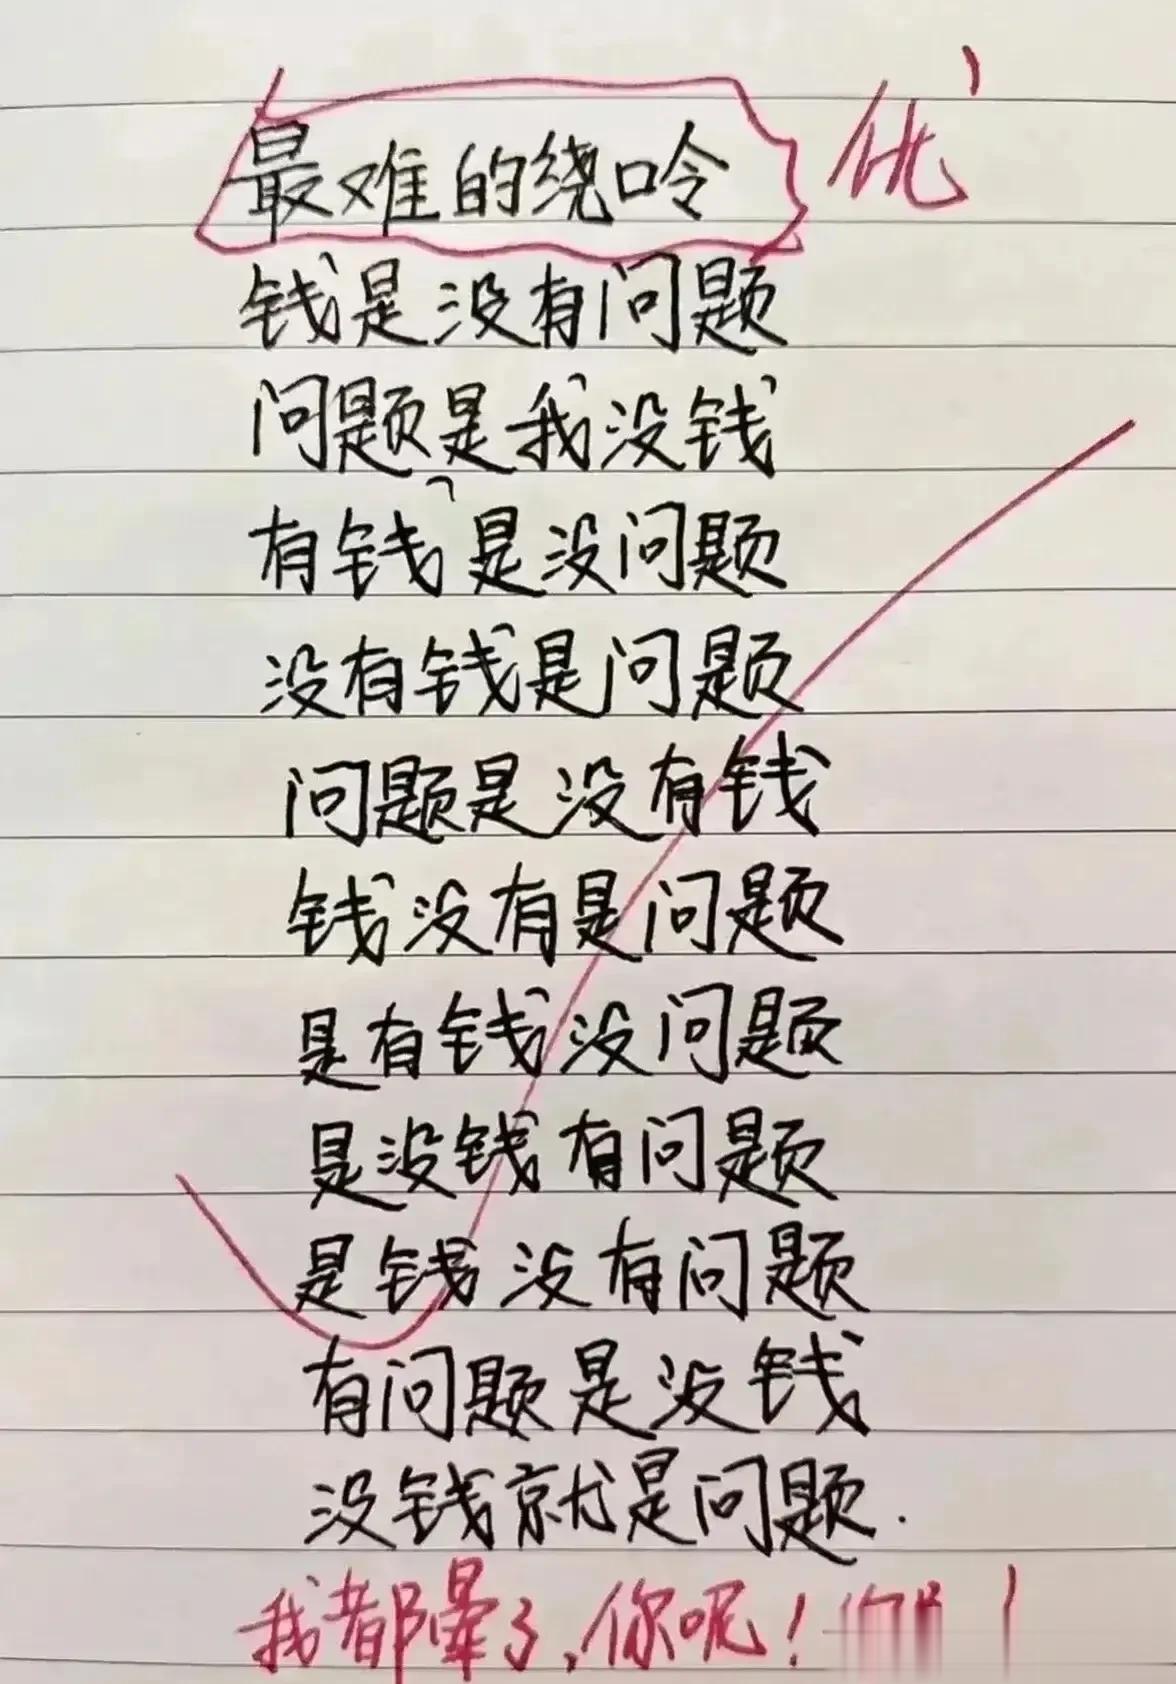 最难的绕口令
优
钱是没有问题
问题是我没钱
有钱是没问题
没有钱是问题
问题是没有钱
钱没有是问题
是有钱没问题
是没钱有问题
是钱没有问题
有问题是没钱
没钱就是问题.
我都晕了,你呢!